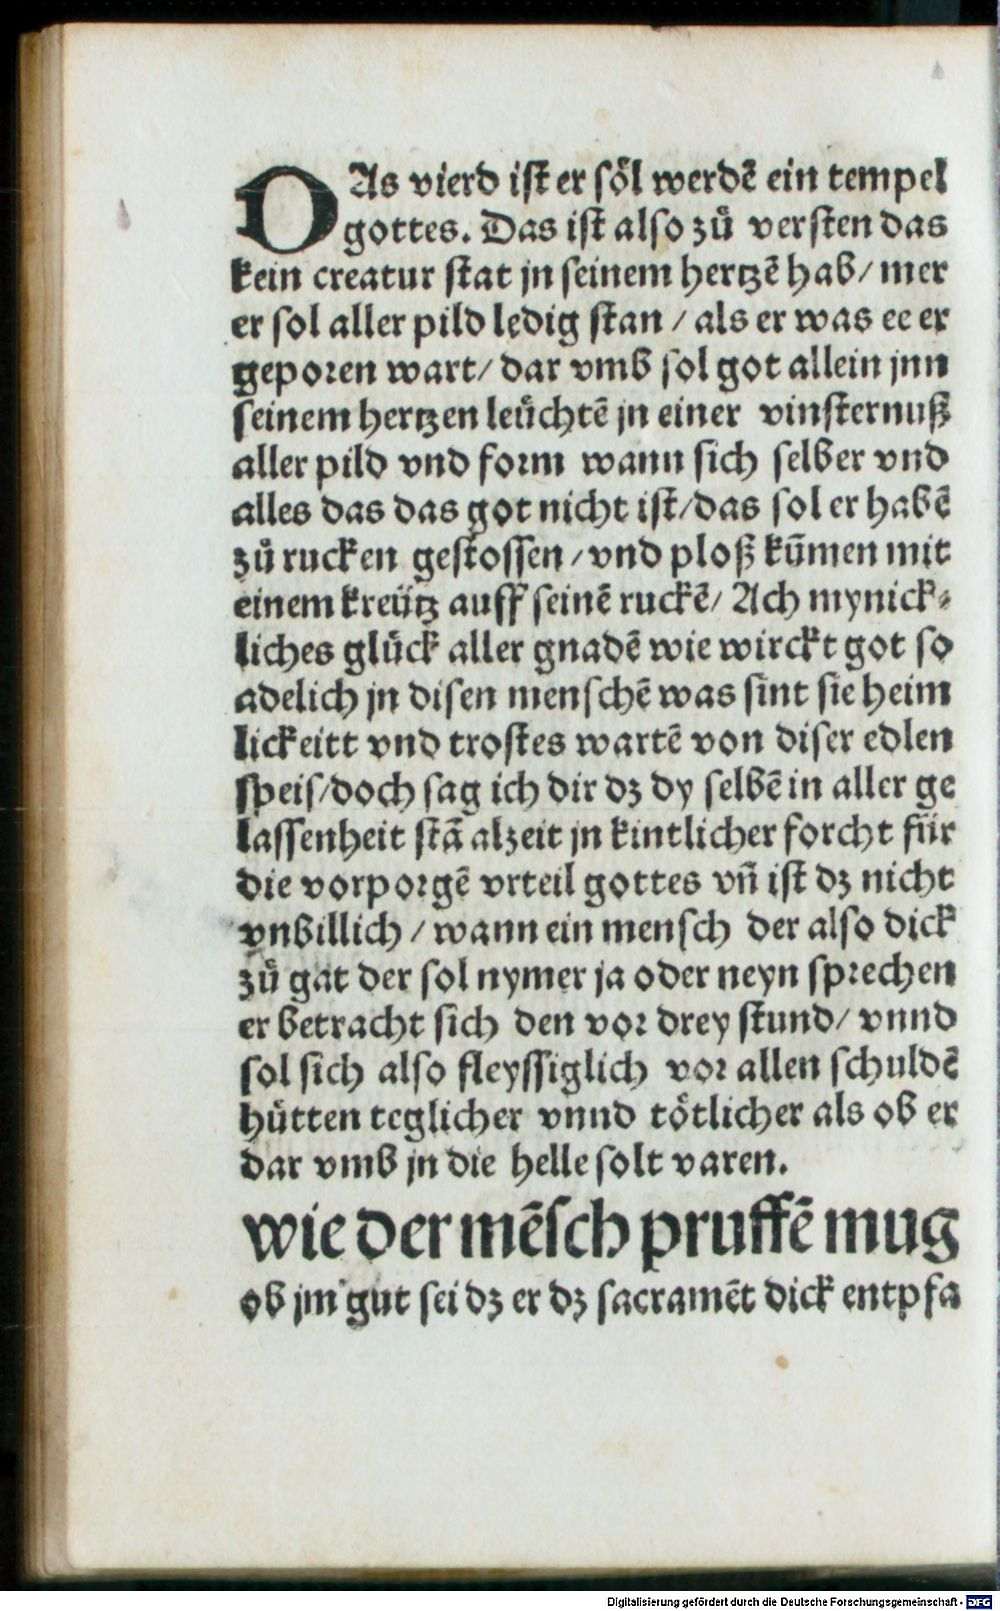 DAs vierd iſt er ſoͤl werdē ein tempel
gottes. Das iſt alſo zuͦ verſten das
kein creatur ſtat jn ſeinem hertzē hab/ mer
er ſol aller pild ledig ſtan / als er was ee er
geporen wart/ dar vmb ſol got allein jnn
ſeinem hertzen leuͤchtē jn einer vinſternuß
aller pild vnd form wann ſich ſelber vnd
alles das das got nicht iſt/das ſol er habē
zuͦ rucken geſtoſſen/vnd ploß kūmen mit
einem kreütz auff ſeinē ruckē/ Ach mynick⸗
liches gluͤck aller gnadē wie wirckt got ſo
adelich jn diſen menſchē was ſint ſie heim
lickeitt vnd troſtes wartē von diſer edlen
ſpeis/doch ſag ich dir dz dy ſelbē in aller ge
laſſenheit ſtā alzeit jn kintlicher forcht für
die vorporgē vrteil gottes vn̄ iſt dz nicht
vnbillich/wann ein menſch der alſo dick
zuͦ gat der ſol nymer ja oder neyn ſprechen
er betracht ſich den vor drey ſtund/ vnnd
ſol ſich alſo fleyſſiglich vor allen ſchuldē
hütten teglicher vnnd toͤtlicher als ob er
dar vmb jn die helle ſolt varen.
wie der mēſch pruffē mug
ob jm gut ſei dz er dz ſacramēt dick entpfa
Digitalisierung gefördert durch die Deutsche Forschungsgemeinschaft - DFG